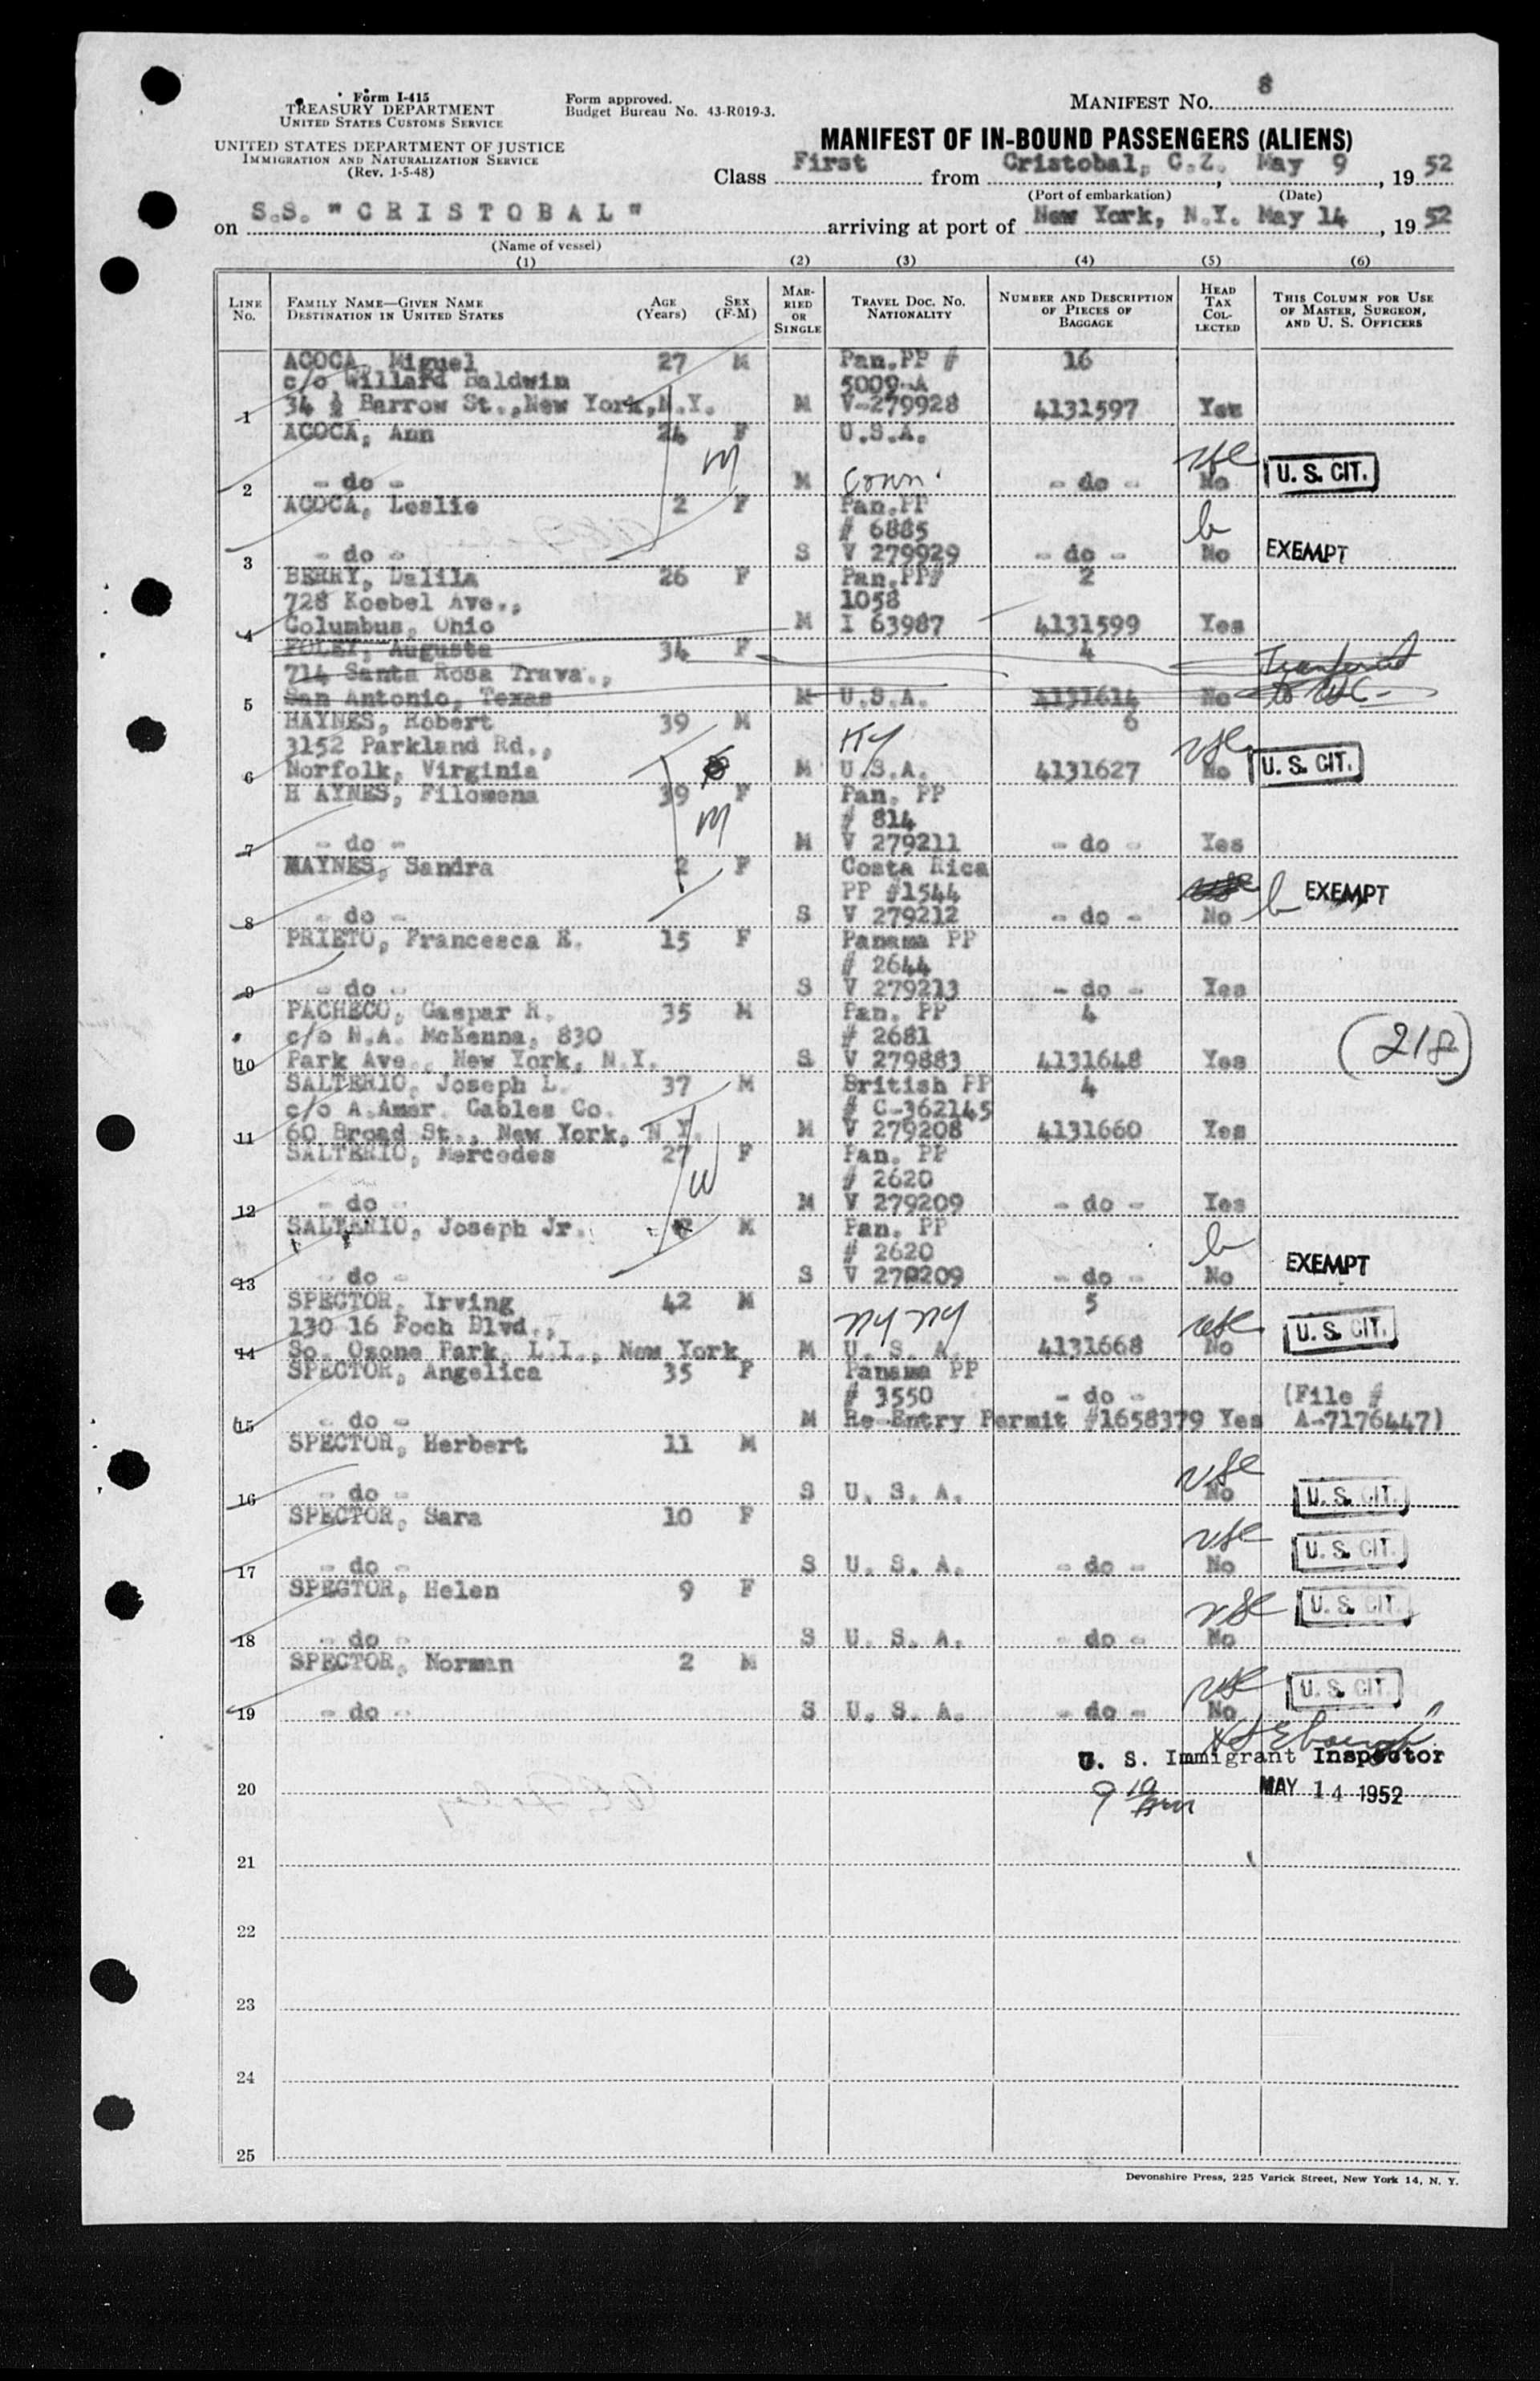 Form I-415
TREASURY DEPARTMENT
UNITED STATES CUSTOMS SERVICE
UNITED STATES DEPARTMENT OF JUSTICE
IMMIGRATION AND NATURALIZATION SERVICE
(Rev. 1-5-48)
Form approved.
Budget Bureau No. 43-R019-3.
MANIFEST NO. 8
MANIFEST OF IN-BOUND PASSENGERS (ALIENS)
Class First from Cristobal, C.Z. May 9, 1952
(Port of embarkation) (Date)
on S.S. "CRISTOBAL" arriving at port of New York, N.Y. May 14, 1952
(Name of vessel)
(1) (2) (3) (4) (5) (6)
LINE No. FAMILY NAME—GIVEN NAME DESTINATION IN UNITED STATES AGE (Years) SEX (F-M) MARRIED OR SINGLE TRAVEL DOC. NO. NATIONALITY NUMBER AND DESCRIPTION OF PIECES OF BAGGAGE HEAD TAX COLLECTED THIS COLUMN FOR USE OF MASTER, SURGEON, AND U. S. OFFICERS
ACOCA, Miguel 27 M Pan.PP # 16
c/o Willard Baldwin 5009-A
1 34 ½ Barrow St.,New York,N.Y. M V-279928 4131597 Yes
ACOCA, Ann 24 F U.S.A.
M
2 - do - M Conn. - do - No usc U. S. CIT.
ACOCA, Leslie 2 F Pan.PP
# 6885 b
3 - do - S V 279929 - do - No EXEMPT
BERRY, Dalila 26 F Pan.PP# 2
728 Koebel Ave., 1058
4 Columbus, Ohio M I 63987 4131599 Yes
FOLEY, Augusta 34 F 4 Tranferred
714 Santa Rosa Trava.,
5 San Antonio, Texas M U.S.A. 4131614 No to USC-
HAYNES, Robert 39 M 6
3152 Parkland Rd., Ky usc
6 Norfolk, Virginia M U.S.A. 4131627 No U. S. CIT.
H AYNES, Filomena 39 F Pan. PP
M # 814
7 - do - M V 279211 - do - Yes
MAYNES, Sandra 2 F Costa Rica
PP #1544 b EXEMPT
8 - do - S V 279212 - do - No
PRIETO, Francesca E. 15 F Panama PP
# 2644
9 - do - S V 279213 - do - Yes
PACHECO, Gaspar R. 35 M Pan. PP 4
c/o N.A. McKenna, 830 # 2681 (218)
10 Park Ave., New York, N.Y. S V 279883 4131648 Yes
SALTERIO, Joseph L. 37 M British PP 4
c/o A.Amer. Cables Co. # C-362145
11 60 Broad St., New York, N.Y. M V 279208 4131660 Yes
SALTERIO, Mercedes 27 F Pan. PP
W # 2620
12 - do - M V 279209 - do - Yes
SALTERIO, Joseph Jr. M Pan. PP
# 2620 b
13 - do - S V 279209 - do - No EXEMPT
SPECTOR, Irving 42 M 5
130-16 Foch Blvd., NY NY usc
14 So. Ozone Park, L.I., New York M U. S. A. 4131668 No U. S. CIT.
SPECTOR, Angelica 35 F Panama PP
# 3550 - do - (File #
15 - do - M Re-Entry Permit #1658379 Yes A-7176447)
SPECTOR, Herbert 11 M
usc
16 - do - S U. S. A. No U. S. CIT.
SPECTOR, Sara 10 F
usc
17 - do - S U. S. A. - do - No U. S. CIT.
SPECTOR, Helen 9 F
usc
18 - do - S U. S. A. - do - No U. S. CIT.
SPECTOR, Norman 2 M
usc
19 - do - S U. S. A. - do - No U. S. CIT.
U. S. Immigrant Inspector
20 9 10 Am MAY 14 1952
21
22
23
24
25
Devonshire Press, 225 Varick Street, New York 14, N. Y.